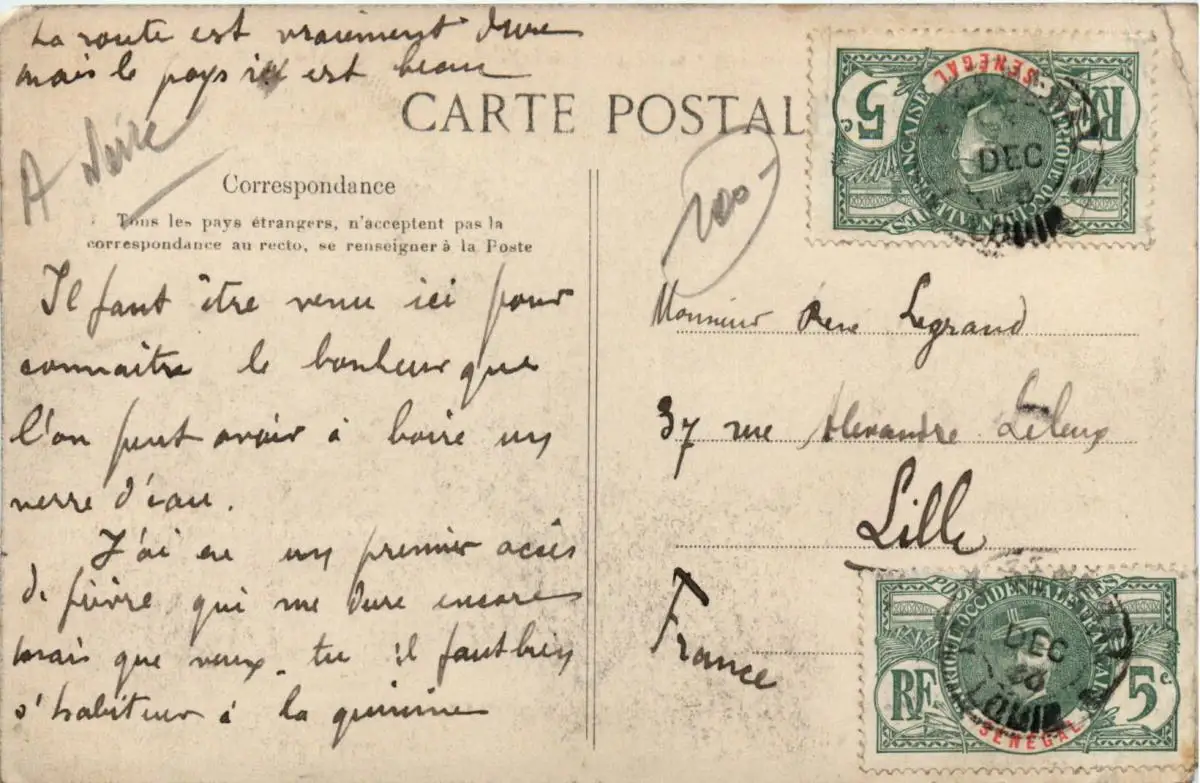 La route est vraiment dure
mais le pays est beau
CARTE POSTALE
A
Correspondance
Tous les pays étrangers, n'acceptent pas la
correspondance au recto, se renseigner à la Poste
Il faut être venu ici pour
connaitre le bonheur que
l'on peut avoir à boire un
verre d'eau.
J'ai eu un premier accès
de fièvre qui me dure encore
mais que veux-tu il faut bien
s'habituer à la quinine
200-
SENEGAL
5 c.
RF
AFRIQUE OCCIDENTALE FRANÇAISE
POSTES
DEC
LOUIS
Monsieur René Legrand
37 rue Alexandre Leleux
Lille
France
POSTES
AFRIQUE OCCIDENTALE FRANÇAISE
RF
5 c.
SENEGAL
DEC
LOUIS